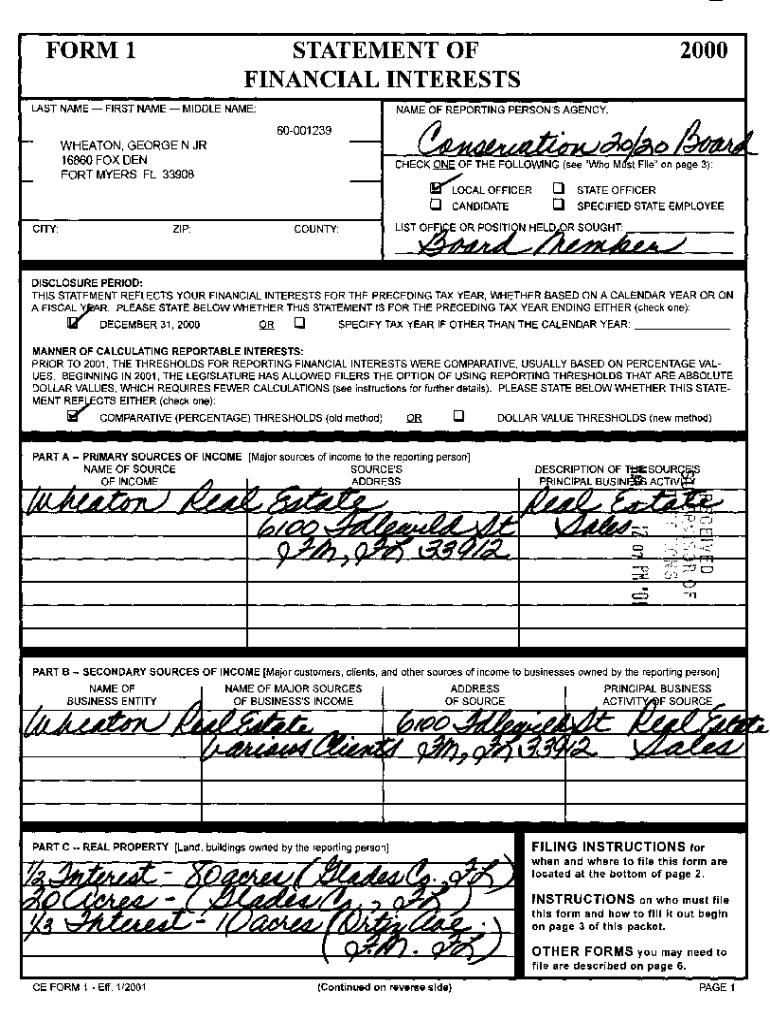 FORM 1 STATEMENT OF 2000
FINANCIAL INTERESTS
LAST NAME — FIRST NAME — MIDDLE NAME:
60-001239
WHEATON, GEORGE N JR
16860 FOX DEN
FORT MYERS FL 33908
CITY: ZIP: COUNTY:
NAME OF REPORTING PERSON'S AGENCY:
Conservation 20/20 Board
CHECK ONE OF THE FOLLOWING (see "Who Must File" on page 3):
LOCAL OFFICER STATE OFFICER
CANDIDATE SPECIFIED STATE EMPLOYEE
LIST OFFICE OR POSITION HELD OR SOUGHT:
Board Member
DISCLOSURE PERIOD:
THIS STATEMENT REFLECTS YOUR FINANCIAL INTERESTS FOR THE PRECEDING TAX YEAR, WHETHER BASED ON A CALENDAR YEAR OR ON
A FISCAL YEAR. PLEASE STATE BELOW WHETHER THIS STATEMENT IS FOR THE PRECEDING TAX YEAR ENDING EITHER (check one):
DECEMBER 31, 2000 OR SPECIFY TAX YEAR IF OTHER THAN THE CALENDAR YEAR:
MANNER OF CALCULATING REPORTABLE INTERESTS:
PRIOR TO 2001, THE THRESHOLDS FOR REPORTING FINANCIAL INTERESTS WERE COMPARATIVE, USUALLY BASED ON PERCENTAGE VAL-
UES. BEGINNING IN 2001, THE LEGISLATURE HAS ALLOWED FILERS THE OPTION OF USING REPORTING THRESHOLDS THAT ARE ABSOLUTE
DOLLAR VALUES, WHICH REQUIRES FEWER CALCULATIONS (see instructions for further details). PLEASE STATE BELOW WHETHER THIS STATE-
MENT REFLECTS EITHER (check one):
COMPARATIVE (PERCENTAGE) THRESHOLDS (old method) OR DOLLAR VALUE THRESHOLDS (new method)
PART A -- PRIMARY SOURCES OF INCOME [Major sources of income to the reporting person]
NAME OF SOURCE SOURCE'S DESCRIPTION OF THE SOURCE'S
OF INCOME ADDRESS PRINCIPAL BUSINESS ACTIVITY
Wheaton Real Estate Real Estate
6100 Idlewild St Sales
FM, FL 33912
RECEIVED
PART B -- SECONDARY SOURCES OF INCOME [Major customers, clients, and other sources of income to businesses owned by the reporting person]
NAME OF NAME OF MAJOR SOURCES ADDRESS PRINCIPAL BUSINESS
BUSINESS ENTITY OF BUSINESS'S INCOME OF SOURCE ACTIVITY OF SOURCE
Wheaton Real Estate 6100 Idlewild St Real Estate
Various Clients FM, FL 33912 Sales
PART C -- REAL PROPERTY [Land, buildings owned by the reporting person]
1/2 Interest - 80 acres (Glades Co., FL)
20 Acres - (Glades Co., FL)
1/3 Interest - 10 acres (Ortiz Ave.
(F.M. FL)
FILING INSTRUCTIONS for
when and where to file this form are
located at the bottom of page 2.
INSTRUCTIONS on who must file
this form and how to fill it out begin
on page 3 of this packet.
OTHER FORMS you may need to
file are described on page 6.
CE FORM 1 - Eff. 1/2001 (Continued on reverse side) PAGE 1